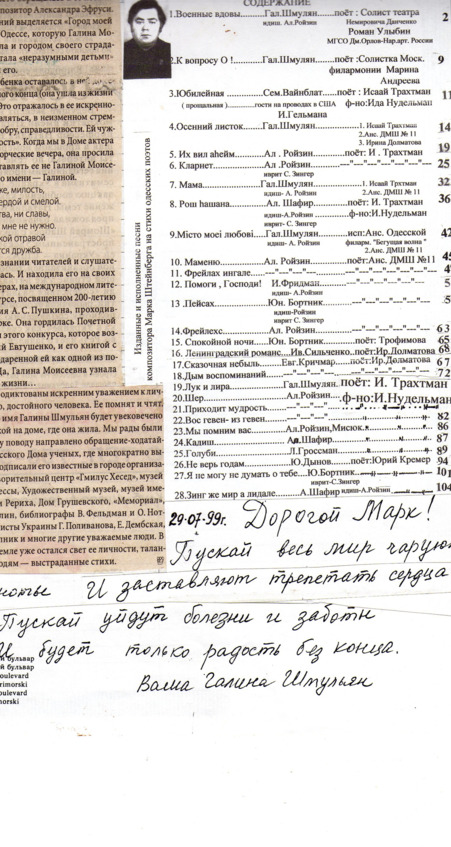 позитор Александра Эфруси.
ий выделяется «Город моей
Одессе, которую Галина Мо-
ла и городом своего страда-
итала «неразумными детьми»
его.
бенка оставалось в ней до са-
вого конца (она ушла из жизни
Это отражалось в ее искренно-
вляться, в неизменном стрем-
обру, справедливости. Ей чуж-
ость». Когда мы в Доме актера
орческие вечера, она просила
тавлять ее не Галиной Моисе-
о имени — Галиной.
же, милость,
ердой и смелой.
тва, ни славы,
мне не нужно.
кой отравой
тся дружба.
знании читателей и слушате-
ась. И находила его на своих
ерах, на международном лите-
урсе, посвященном 200-летию
я А. С. Пушкина, проходив-
рке. Она гордилась Почетной
этого конкурса, которое воз-
й Евтушенко, и его книгой с
одаренной ей как одной из по-
да, Галина Моисеевна узнала
жизни…
одиктованы искренним уважением к лич-
о, достойного человека. Ее помнят и чтят.
имя Галины Шмульян будет увековечено
кой на доме, где она жила. Мы рады были
у поводу направлено обращение-ходатай-
усского Дома ученых, где многократно вы-
одписали его известные в городе организа-
ворительный центр «Гмилус Хесед», музей
ессы, Художественный музей, музей име-
Рериха, Дом Грушевского, «Мемориал»,
лин, библиографы В. Фельдман и О. Нот-
исты Украины Г. Поливанова, Е. Дембская,
нник и многие другие уважаемые люди. В
земле уже остался свет ее личности, талан-
одям — выстраданные стихи.
Изданные и исполненные песни
композитора Марка Штейнберга на стихи одесских поэтов
СОДЕРЖАНИЕ
1.Военные вдовы......Гал.Шмулян........поёт : Солист театра 2
идиш Ал.Ройзин Немировича Данченко
Роман Улыбин
МГСО Дм.Орлов-Нар.арт. России
2.К вопросу О !......Гал.Шмулян........поёт :Солистка Моск. 9
филармонии Марина
Андреева
3.Юбилейная......Сем.Вайнблат......поёт : Исаай Трахтман 11
( прощальная )......гости на проводах в США ф-но:Ида Нудельман
И.Гельмана
4.Осенний листок......Гал.Шмулян 1. Исаай Трахтман 14
2.Анс. ДМШ № 11
3. Ирина Долматова
5. Их вил аhейм......Ал .Ройзин......поёт: И. Трахтман 19
6. Кларнет......Ал .Ройзин 25
иврит С. Зингер
7. Мама......Гал.Шмулян 1. Исаай Трахтман 32
идиш- А. Ройзин 2.Анс. ДМШ № 11
8. Рош hашана......Ал. Шафир......поёт: И. Трахтман 36
идиш-А.Ройзин ф-но:И.Нудельман
иврит- С. Зингер
9.Місто моеі любові......Гал.Шмулян......исп:Анс. Одесской 42
идиш- А. Ройзин филарм. "Бегущая волна "
2.Анс. ДМШ № 11
10. Маменю......Ал. Ройзин......поёт:Анс. ДМШ №11
11. Фрейлах ингале
12. Помоги , Господи! И.Фридман
идиш- А.Ройзин
13 .Пейсах......Юн. Бортник
идиш-Ройзин
иврит С. Зингер
14.Фрейлехс......Ал. Ройзин 63
15. Спокойной ночи......Юн. Бортник......поёт: Трофимова 65
16. Ленинградский романс....Ив.Сильченко..поёт:Ир.Долматова 66
17.Сказочная небыль......Евг.Кричмар......поёт:Ир.Долматова 67
18.Дым воспоминаний 72
19.Лук и лира......Гал.Шмулян поёт: И. Трахтман
20.Шер......Ал.Ройзин......ф-но:И.Нудельман
21.Приходит мудрость
22.Вос гевен- из гевен 82
23.Мы помним вас......Ал.Ройзин,Мисюк 86
24.Кадиш......Ал.Шафир 87
25.Голуби......Л.Гроссман 89
26.Не верь годам......Ю.Дынов......поёт:Юрий Кремер 94
27.Я не могу не думать о тебе...Ю.Бортник 101
иврит-С.Зингер
28.Зинг же мир а лидале......А.Шафир идиш-А.Ройзин 104
29-07-99г. Дорогой Марк!
Пускай весь мир чарую
И заставляют трепетать сердца
Пускай уйдут болезни и заботы
И будет только радость без конца.
Ваша Галина Шмульян
й бульвар
й бульвар
oulevard
rimorski
oulevard
morski